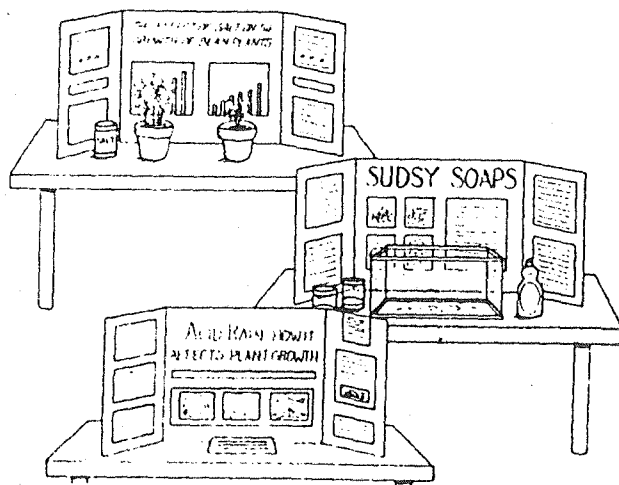 THE EFFECT OF SALT ON THE
GROWTH OF BEAN PLANTS
SALT
SUDSY SOAPS
ACID RAIN HOW IT
AFFECTS PLANT GROWTH